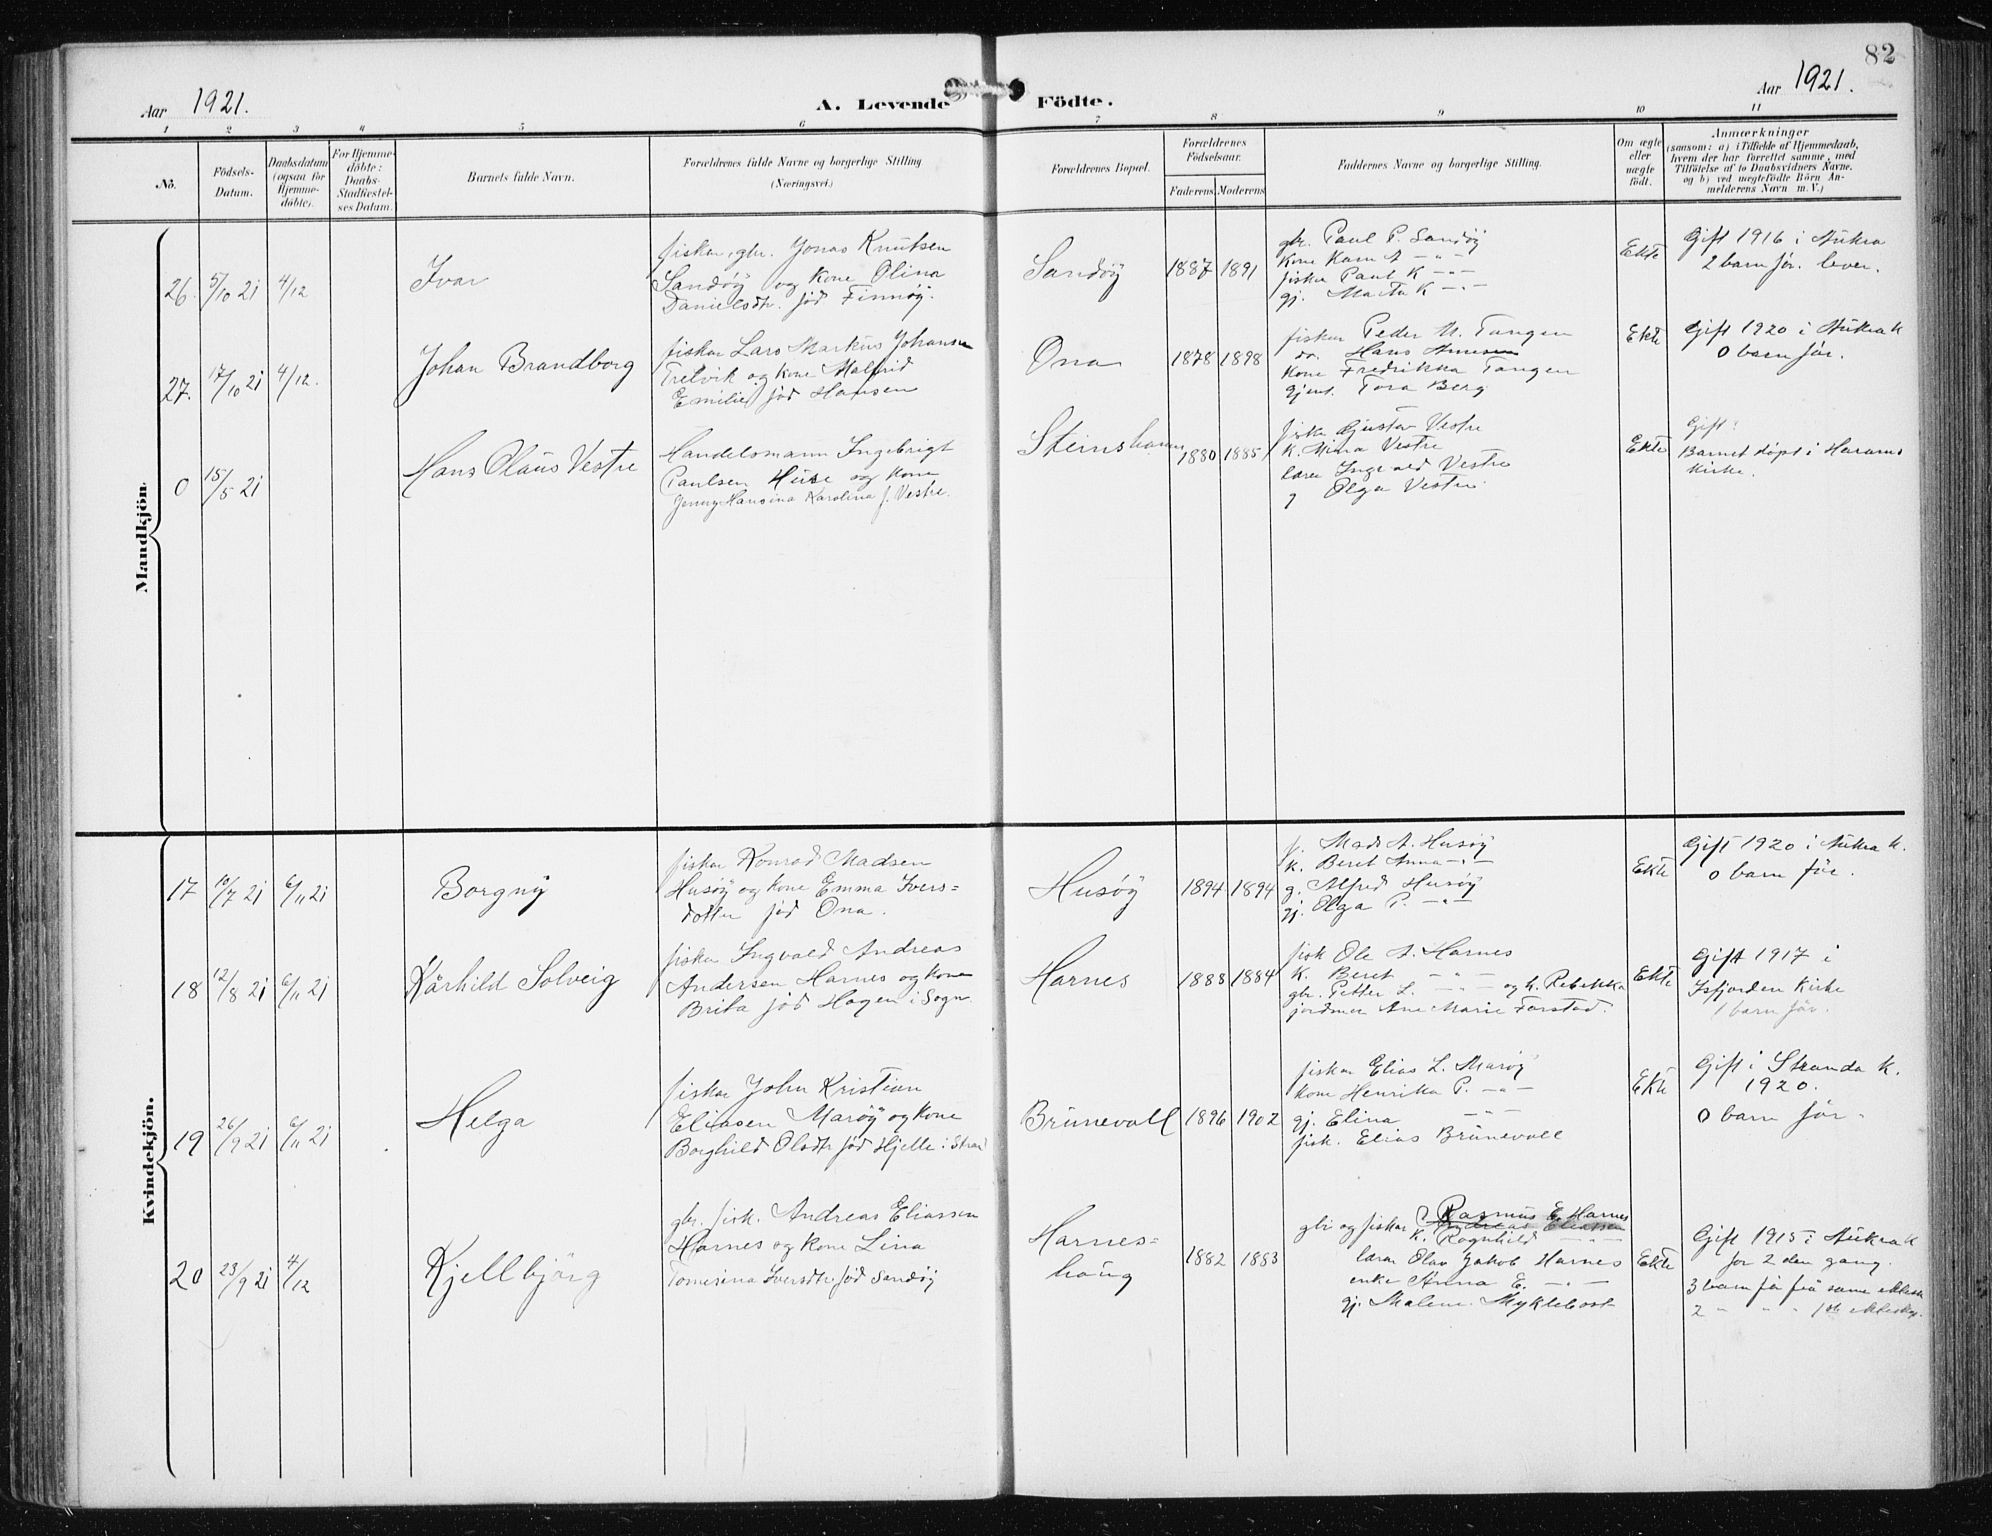 82
Aar 1921.
A. Levende Födte.
Aar 1921.
1 2 3 4 5 6 7 8 9 10 11
No.
Födsels-Datum.
Daabsdatum (ogsaa for Hjemme-döbte).
For Hjemme-döbte: Daabs-Stadfæstel-ses Datum.
Barnets fulde Navn.
Forældrenes fulde Navne og borgerlige Stilling
(Næringsvei.)
Forældrenes Bopæl.
Forældrenes Födselsaar.
Faderens. Moderens.
Faddernes Navne og borgerlige Stilling.
Om ægte eller uægte födt.
Anmærkninger
(saasom: a) i Tilfælde af Hjemmedaab,
hvem der har forrettet samme, med
Tilföielse af to Daabsvidners Navne,
og b) ved uægtefödte Börn An-
melderens Navn m. V.)
Mandkjön.
26. 5/10 21 4/12
Ivar
fisker, gbr. Jonas Knutsen
Sandöy og kone Olina
Danielsdtr. föd Finnöy.
Sandöy
1887 1891
gbr. Paul P. Sandöy
kone Karn A - " -
fisker Paul K - " -
gj. Marta K - " -
Ekte
Gift 1916 i Aukra
2 barn för. lever.
27. 17/10 21 4/12.
Johan Brandborg
fisker Lars Markus Johansen
Tretvik og kone Malfrid
Emilie föd Hansen
Ona
1878 1898
fisker Peder M. Tangen
do. Hans
kone Fredrikka Tangen
gjent. Tora Berg
Ekte
Gift 1920 i Aukra k
0 barn för.
0 15/5 21
Hans Olaus Vestre
Handelsmann Ingebrigt
Paulsen Huse og kone
Jenny Hansina Karolina f. Vestre.
Steinshamn
1880 1885
fisker Gustav Vestre
k. Mina Vestre
lærer Ingvald Vestre
g Olga Vestre.
Ekte
Gift:
Barnet döpt i Harams
Kirke.
Kvindekjön.
17 10/7 21 6/11 21
Borgny
fisker Konrad Madsen
Husöy og kone Emma Ivers=
dotter föd Ona.
Husöy
1894 1894
f. Mads A. Husöy
k. Beret Anna - " -
g. Alfred Husöy
gj. Olga P. - " -
Ekte
Gift 1920 i Aukra k.
0 barn för.
18 12/8 21 6/11 21
Kårhild Solveig
fisker Ingvald Andreas
Andersen Harnes og kone
Brita föd Hagen i Sogn
Harnes
1888 1884
fisk Ole A. Harnes
k. Beret - " -
gbr. Petter L. - " - og k. Rebekka
jordmor Ane Marie Farstad.
Ekte
Gift 1917 i
Isfjorden Kirke
1 barn för.
19 26/9 21 6/11 21
Helga
fisker John Kristian
Eliasen Maröy og kone
Borghild Olsdtr föd Hjelle i Stran
Brunevoll
1896 1902
fisker Elias L. Maröy
kone Henrika P. - " -
gj. Elina - " -
fisk. Elias Brunevoll
Ekte
Gift i Stranda k.
1920.
0 barn för.
20 23/9 21 4/12
Kjellbjörg
gbr. fisk. Andreas Eliassen
Harnes og kone Lina
Tomesina Iversdtr föd Sandöy
Harnes=
haug
1882 1883
gbr og fisker Rasmus E. Harnes
Andreas Eliassen
k. Ragnhild - " -
lærer Olav Jakob Harnes
enke Anna E. - " -
gj. Malene Myklebost
Ekte
Gift 1915 i Aukra k
for 2 den gang.
3 barn för frå same
2 " " " 1ste